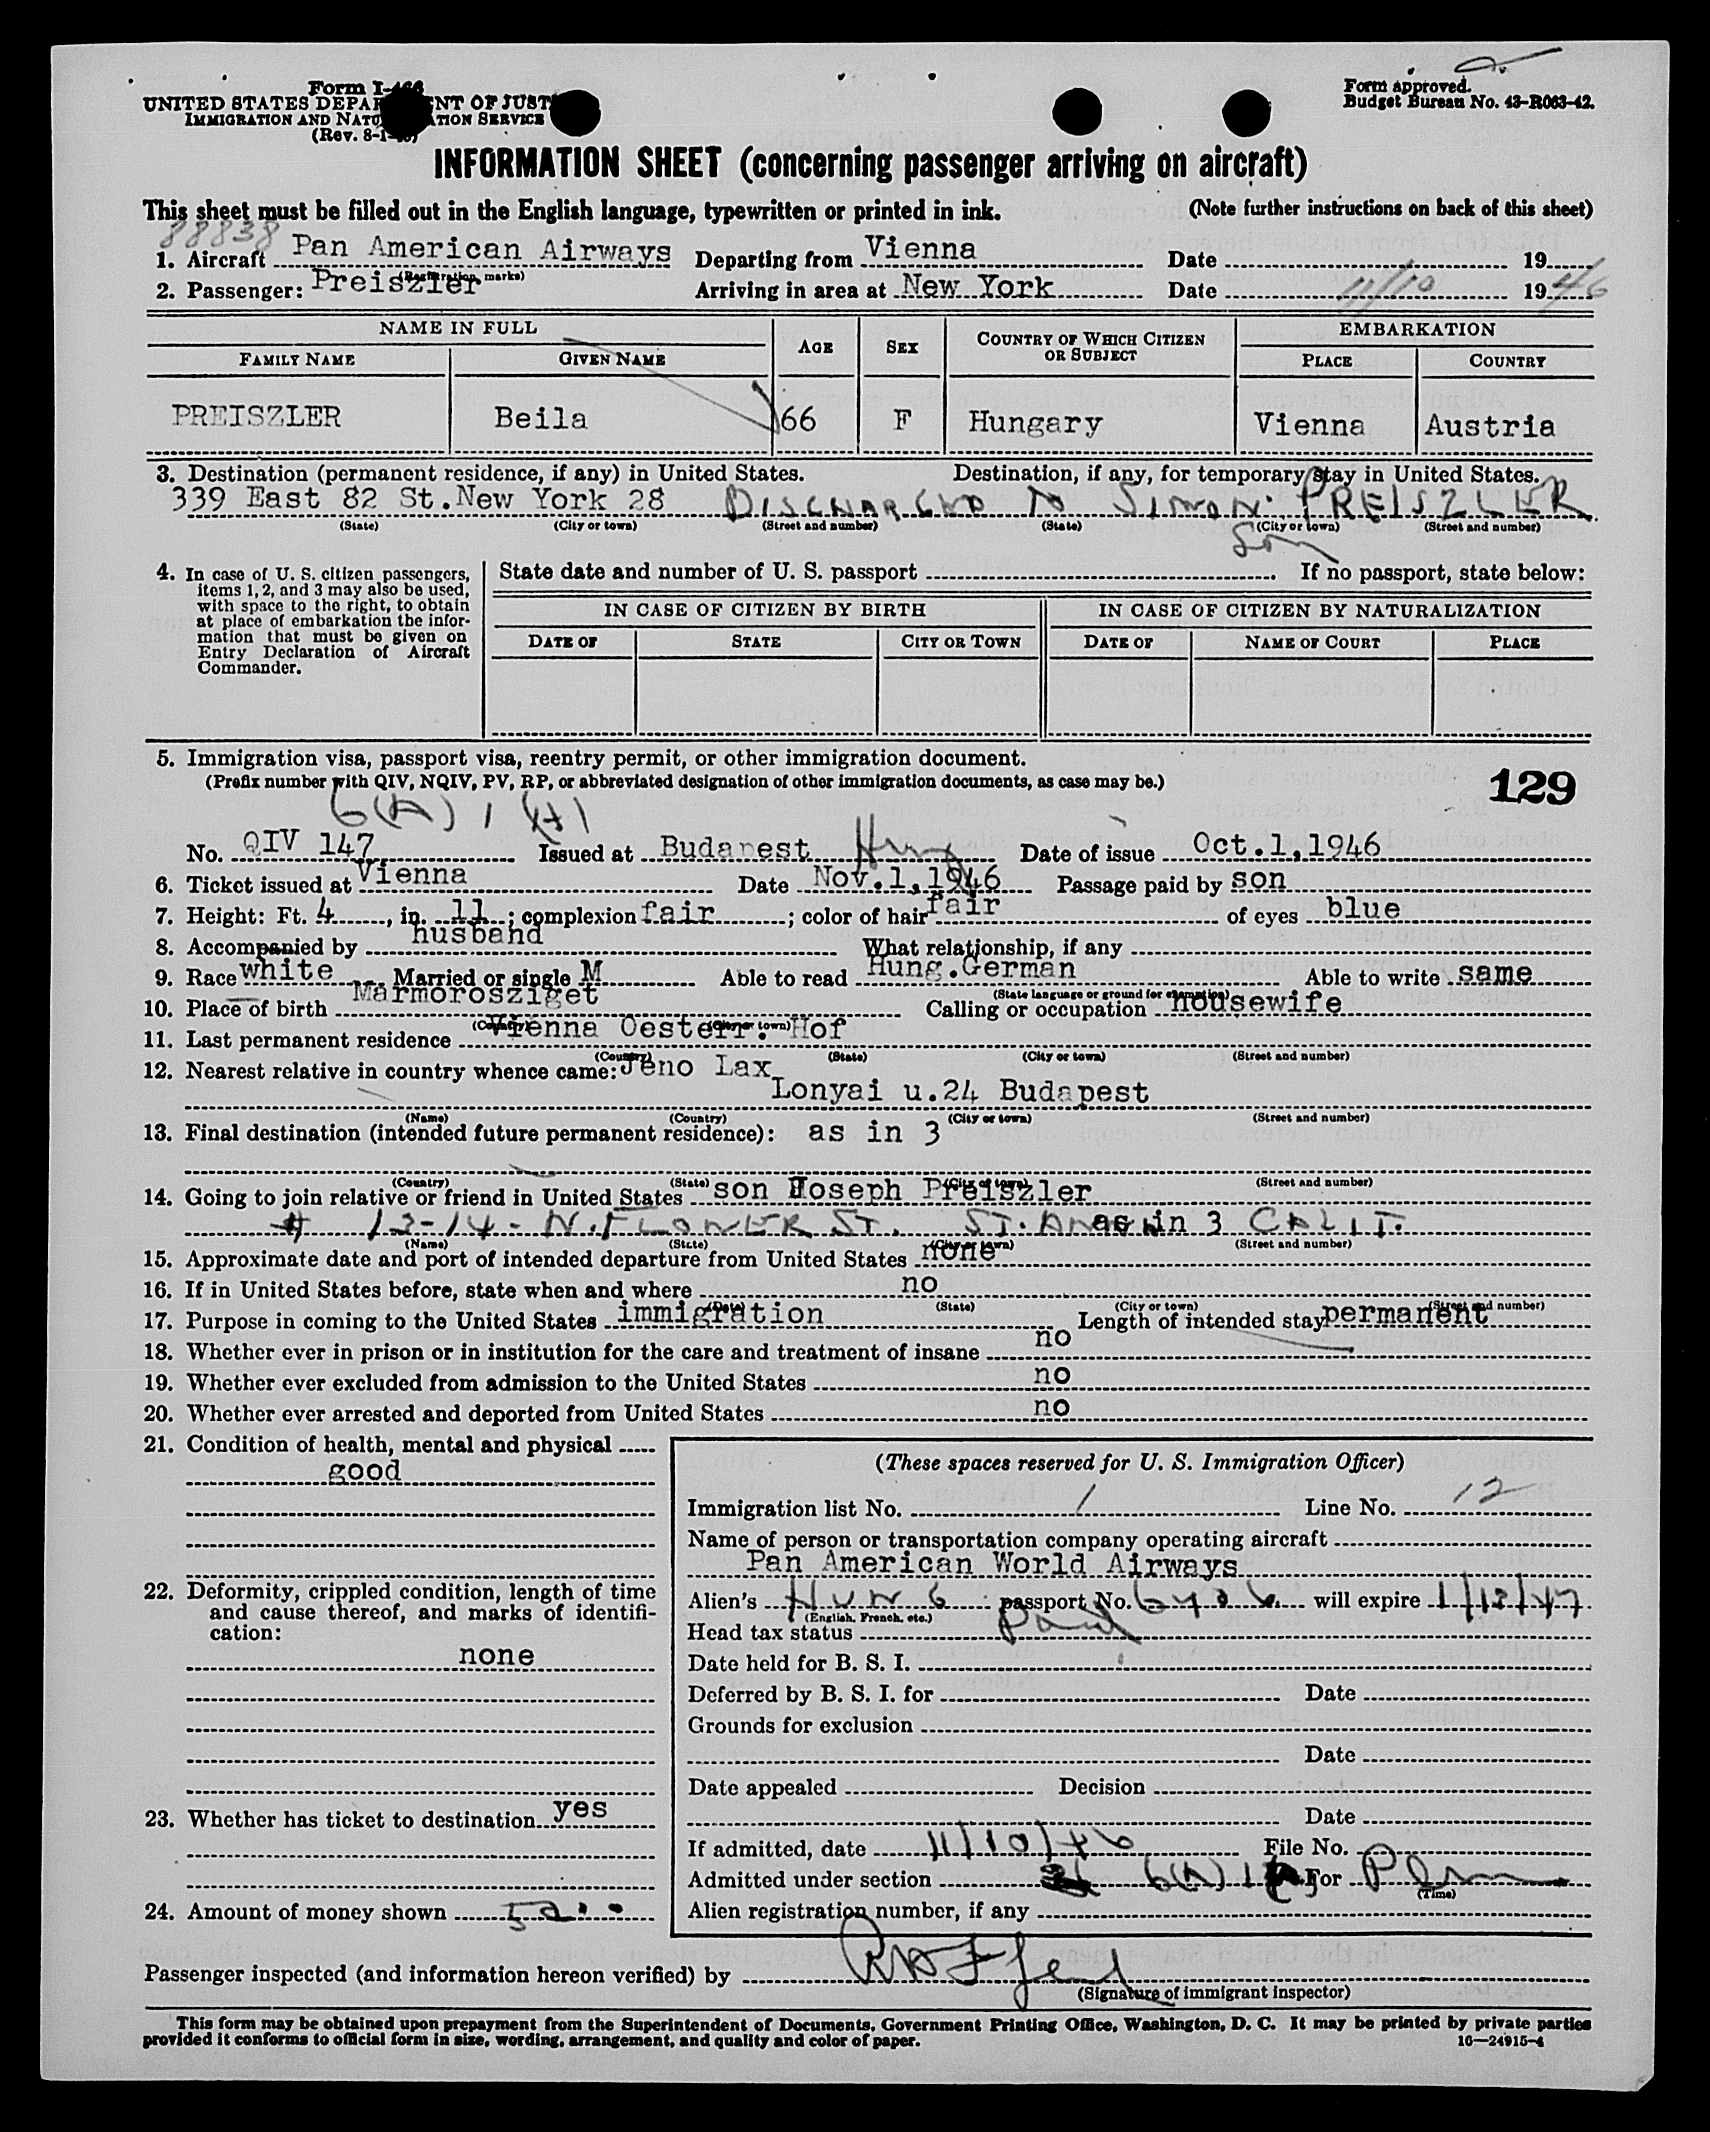 Form I-466
UNITED STATES DEPARTMENT OF JUSTICE
IMMIGRATION AND NATURALIZATION SERVICE
(Rev. 8-1-
Form approved.
Budget Bureau No. 43-R063-42.
INFORMATION SHEET (concerning passenger arriving on aircraft)
This sheet must be filled out in the English language, typewritten or printed in ink. (Note further instructions on back of this sheet)
88838
1. Aircraft Pan American Airways Departing from Vienna Date 19
(Registration marks)
2. Passenger: Preiszler Arriving in area at New York Date 11/10 1946
NAME IN FULL AGE SEX COUNTRY OF WHICH CITIZEN OR SUBJECT EMBARKATION
FAMILY NAME GIVEN NAME PLACE COUNTRY
PREISZLER Beila 66 F Hungary Vienna Austria
3. Destination (permanent residence, if any) in United States. Destination, if any, for temporary stay in United States.
339 East 82 St. New York 28 DISCHARGED TO SIMON PREISZLER
(State) (City or town) (Street and number) (State) (City or town) (Street and number)
Son
4. In case of U. S. citizen passengers, items 1, 2, and 3 may also be used, with space to the right, to obtain at place of embarkation the information that must be given on Entry Declaration of Aircraft Commander.
State date and number of U. S. passport If no passport, state below:
IN CASE OF CITIZEN BY BIRTH IN CASE OF CITIZEN BY NATURALIZATION
DATE OF STATE CITY OR TOWN DATE OF NAME OF COURT PLACE
5. Immigration visa, passport visa, reentry permit, or other immigration document.
(Prefix number with QIV, NQIV, PV, RP, or abbreviated designation of other immigration documents, as case may be.) 129
6(A) 1 (A)
No. QIV 147 Issued at Budapest Hung Date of issue Oct.1,1946
6. Ticket issued at Vienna Date Nov.1,1946 Passage paid by son
7. Height: Ft. 4, in. 11; complexion fair; color of hair fair of eyes blue
8. Accompanied by husband What relationship, if any
9. Race white Married or single M Able to read Hung.German Able to write same
(State language or ground for exemption)
10. Place of birth Marmorosziget Calling or occupation housewife
(Country) (City or town)
11. Last permanent residence Vienna Oesterr. Hof
(Country) (State) (City or town) (Street and number)
12. Nearest relative in country whence came: Jeno Lax
Lonyai u.24 Budapest
(Name) (Country) (City or town) (Street and number)
13. Final destination (intended future permanent residence): as in 3
(Country) (State) (City or town) (Street and number)
14. Going to join relative or friend in United States son Joseph Preiszler
# 12-14- N. FLOWER ST. ST. as in 3 CALIF.
(Name) (State) (City or town) (Street and number)
15. Approximate date and port of intended departure from United States none
16. If in United States before, state when and where no
(Date) (State) (City or town) (Street and number)
17. Purpose in coming to the United States immigration Length of intended stay permanent
18. Whether ever in prison or in institution for the care and treatment of insane no
19. Whether ever excluded from admission to the United States no
20. Whether ever arrested and deported from United States no
21. Condition of health, mental and physical
good
22. Deformity, crippled condition, length of time and cause thereof, and marks of identification:
none
23. Whether has ticket to destination yes
24. Amount of money shown
(These spaces reserved for U. S. Immigration Officer)
Immigration list No. 1 Line No. 12
Name of person or transportation company operating aircraft
Pan American World Airways
Alien's HUNG passport No. will expire 1/12/47
(English, French, etc.)
Head tax status Paid
Date held for B. S. I.
Deferred by B. S. I. for Date
Grounds for exclusion
Date
Date appealed Decision
Date
If admitted, date 11/10/46 File No.
Admitted under section 6(A)1 For Perm
(Time)
Alien registration number, if any
Passenger inspected (and information hereon verified) by
(Signature of immigrant inspector)
This form may be obtained upon prepayment from the Superintendent of Documents, Government Printing Office, Washington, D. C. It may be printed by private parties
provided it conforms to official form in size, wording, arrangement, and quality and color of paper. 16—24915-4